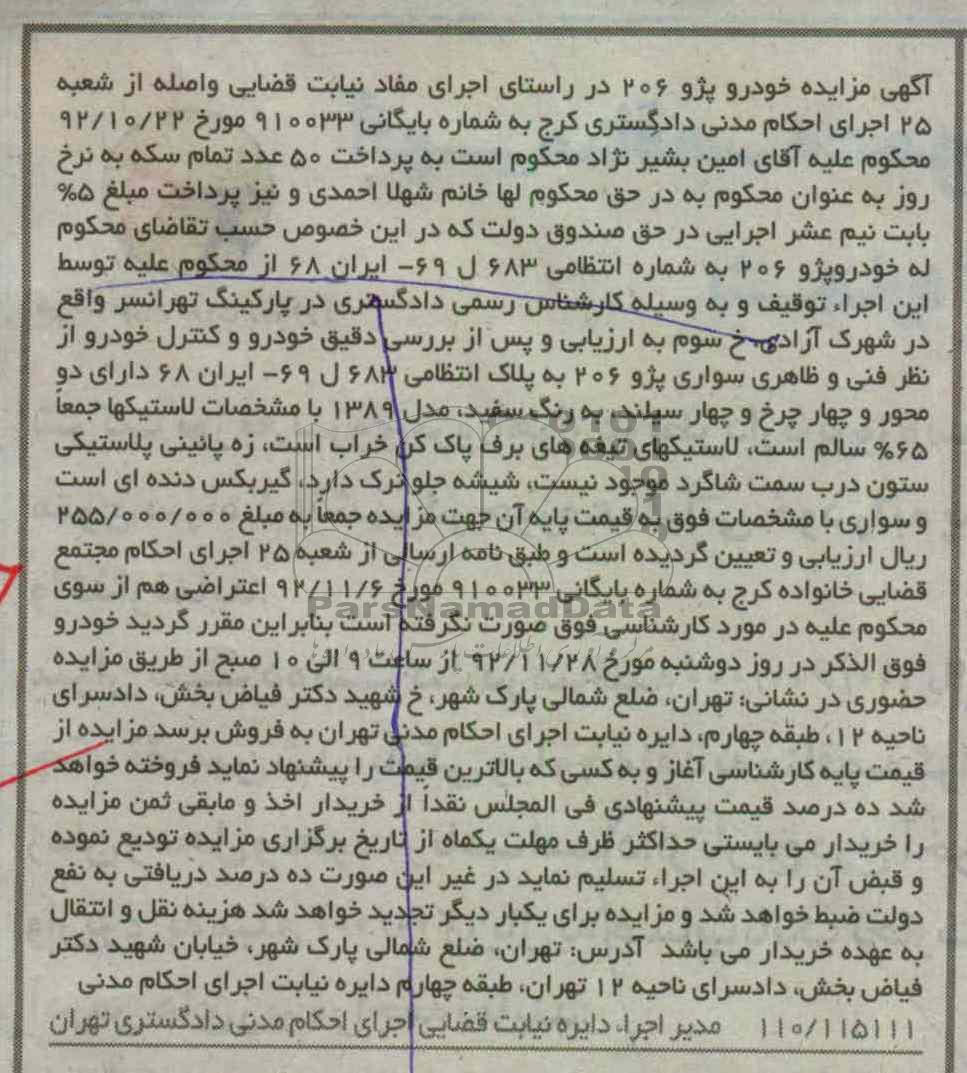 آگهی مزایده خودرو پژو ۲۰۶ در راستای اجرای مفاد نیابت قضایی واصله از شعبه
۲۵ اجرای احکام مدنی دادگستری کرج به شماره بایگانی ۹۱۰۰۳۳ مورخ ۹۲/۱۰/۲۲
محکوم علیه آقای امین بشیر نژاد محکوم است به پرداخت ۵۰ عدد تمام سکه به نرخ
روز به عنوان محکوم به در حق محکوم لها خانم شهلا احمدی و نیز پرداخت مبلغ ۵%
بابت نیم عشر اجرایی در حق صندوق دولت که در این خصوص حسب تقاضای محکوم
له خودروپژو ۲۰۶ به شماره انتظامی ۶۸۳ ل ۶۹- ایران ۶۸ از محکوم علیه توسط
این اجراء توقیف و به وسیله کارشناس رسمی دادگستری در پارکینگ تهرانسر واقع
در شهرک آزادی، خ سوم به ارزیابی و پس از بررسی دقیق خودرو و کنترل خودرو از
نظر فنی و ظاهری سواری پژو ۲۰۶ به پلاک انتظامی ۶۸۳ ل ۶۹- ایران ۶۸ دارای دو
محور و چهار چرخ و چهار سیلند، به رنگ سفید، مدل ۱۳۸۹ با مشخصات لاستیکها جمعاً
۶۵% سالم است، لاستیکهای تیغه های برف پاک کن خراب است، زه پائینی پلاستیکی
ستون درب سمت شاگرد موجود نیست، شیشه جلو ترک دارد، گیربکس دنده ای است
و سواری با مشخصات فوق به قیمت پایه آن جهت مزایده جمعاً به مبلغ ۲۵۵/۰۰۰/۰۰۰
ریال ارزیابی و تعیین گردیده است و طبق نامه ارسالی از شعبه ۲۵ اجرای احکام مجتمع
قضایی خانواده کرج به شماره بایگانی ۹۱۰۰۳۳ مورخ ۹۲/۱۱/۶ اعتراضی هم از سوی
محکوم علیه در مورد کارشناسی فوق صورت نگرفته است بنابراین مقرر گردید خودرو
ParsNamadData
فوق الذکر در روز دوشنبه مورخ ۹۲/۱۱/۲۸ از ساعت ۹ الی ۱۰ صبح از طریق مزایده
حضوری در نشانی: تهران، ضلع شمالی پارک شهر، خ شهید دکتر فیاض بخش، دادسرای
ناحیه ۱۲، طبقه چهارم، دایره نیابت اجرای احکام مدنی تهران به فروش برسد مزایده از
قیمت پایه کارشناسی آغاز و به کسی که بالاترین قیمت را پیشنهاد نماید فروخته خواهد
شد ده درصد قیمت پیشنهادی فی المجلس نقداً از خریدار اخذ و مابقی ثمن مزایده
را خریدار می بایستی حداکثر ظرف مهلت یکماه از تاریخ برگزاری مزایده تودیع نموده
و قبض آن را به این اجراء تسلیم نماید در غیر این صورت ده درصد دریافتی به نفع
دولت ضبط خواهد شد و مزایده برای یکبار دیگر تجدید خواهد شد هزینه نقل و انتقال
به عهده خریدار می باشد آدرس: تهران، ضلع شمالی پارک شهر، خیابان شهید دکتر
فیاض بخش، دادسرای ناحیه ۱۲ تهران، طبقه چهارم دایره نیابت اجرای احکام مدنی
۱۱۰/۱۱۵۱۱۱ مدیر اجرا، دایره نیابت قضایی اجرای احکام مدنی دادگستری تهران